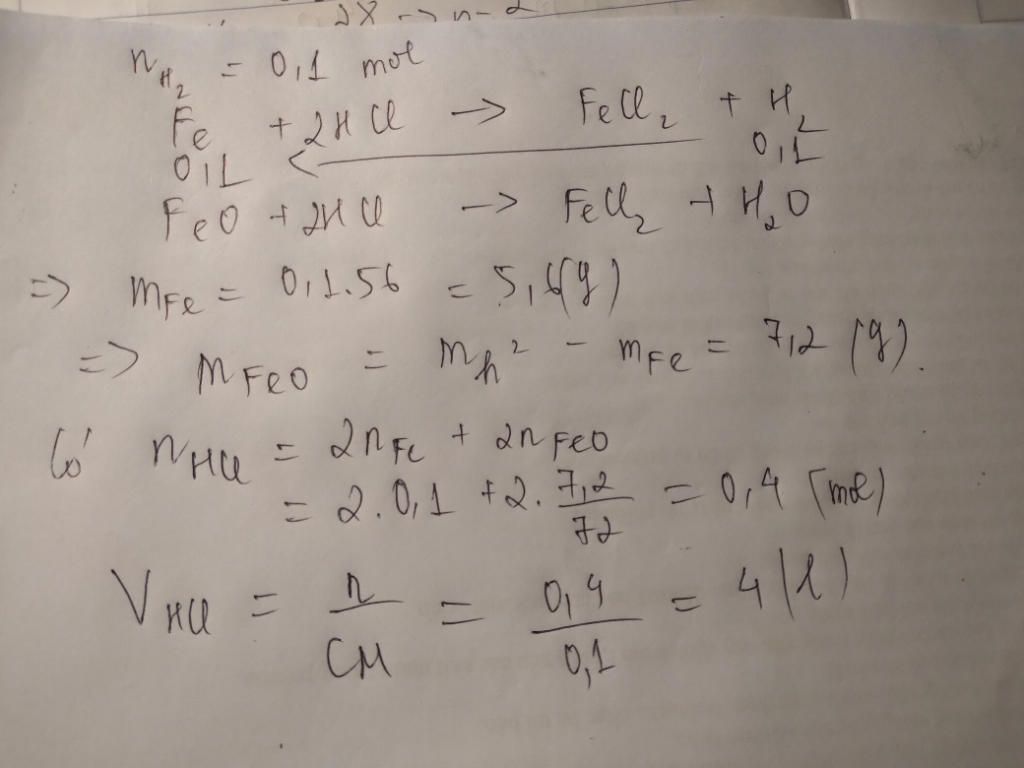 2X -> n - 2
n_{H_2} = 0,1 mol
Fe + 2HCl -> FeCl_2 + H_2
0,1 <- 0,1
FeO + 2HCl -> FeCl_2 + H_2O
=> m_{Fe} = 0,1.56 = 5,6(g)
=> m_{FeO} = m_h^2 - m_{Fe} = 7,2 (g).
Có n_{HCl} = 2n_{Fe} + 2n_{FeO}
= 2.0,1 + 2.\frac{7,2}{72} = 0,4 (mol)
V_{HCl} = \frac{n}{CM} = \frac{0,4}{0,1} = 4(l)